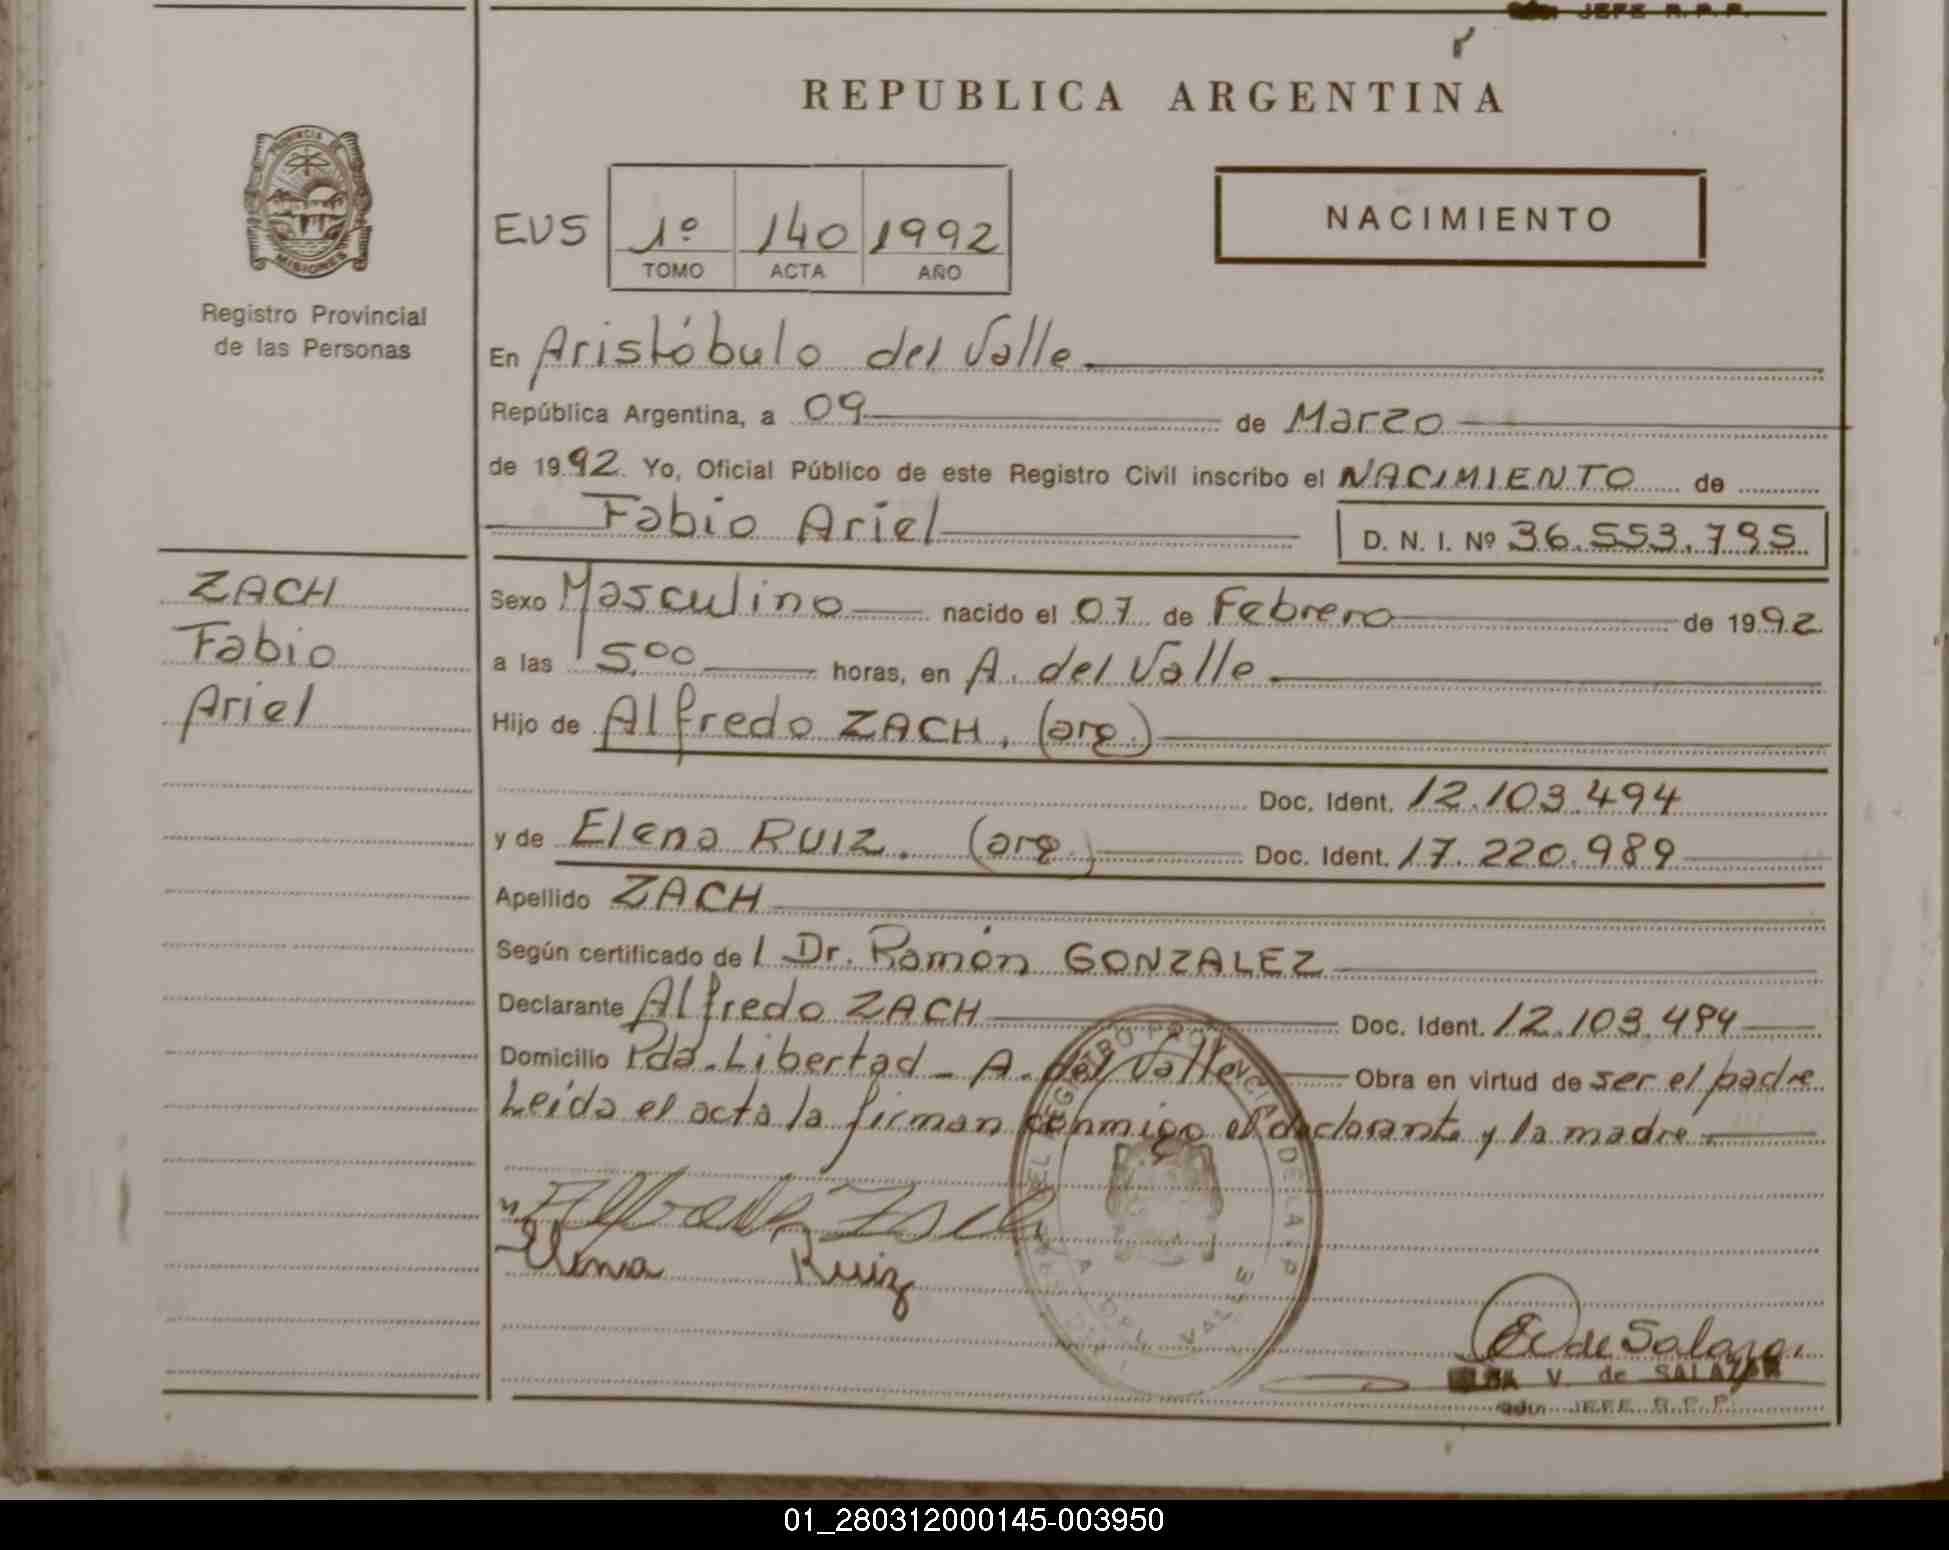 JEFE R.P.P.
REPUBLICA ARGENTINA
PROVINCIA
MISIONES
Registro Provincial
de las Personas
EUS 1º 140 1992
TOMO ACTA AÑO
NACIMIENTO
En Aristóbulo del Valle
República Argentina, a 09 de Marzo
de 1992. Yo, Oficial Público de este Registro Civil inscribo el NACIMIENTO de
Fabio Ariel D. N. I. Nº 36.553.795
ZACH
Fabio
Ariel
Sexo Masculino nacido el 07 de Febrero de 1992
a las 5,00 horas, en A. del Valle
Hijo de Alfredo ZACH. (arg.)
Doc. Ident. 12.103.494
y de Elena RUIZ. (arg.) Doc. Ident. 17.220.989
Apellido ZACH
Según certificado de l Dr. Ramón GONZALEZ
Declarante Alfredo ZACH Doc. Ident. 12.103.494
Domicilio Pda. Libertad - A. del Valle Obra en virtud de ser el padre
Leida el acta la firman conmigo el declarante y la madre
Alfredo Zach
Elena Ruiz
A. DEL VALLE
de Salazar
V. de SALAZAR
JEFE R.P.P.
01_280312000145-003950